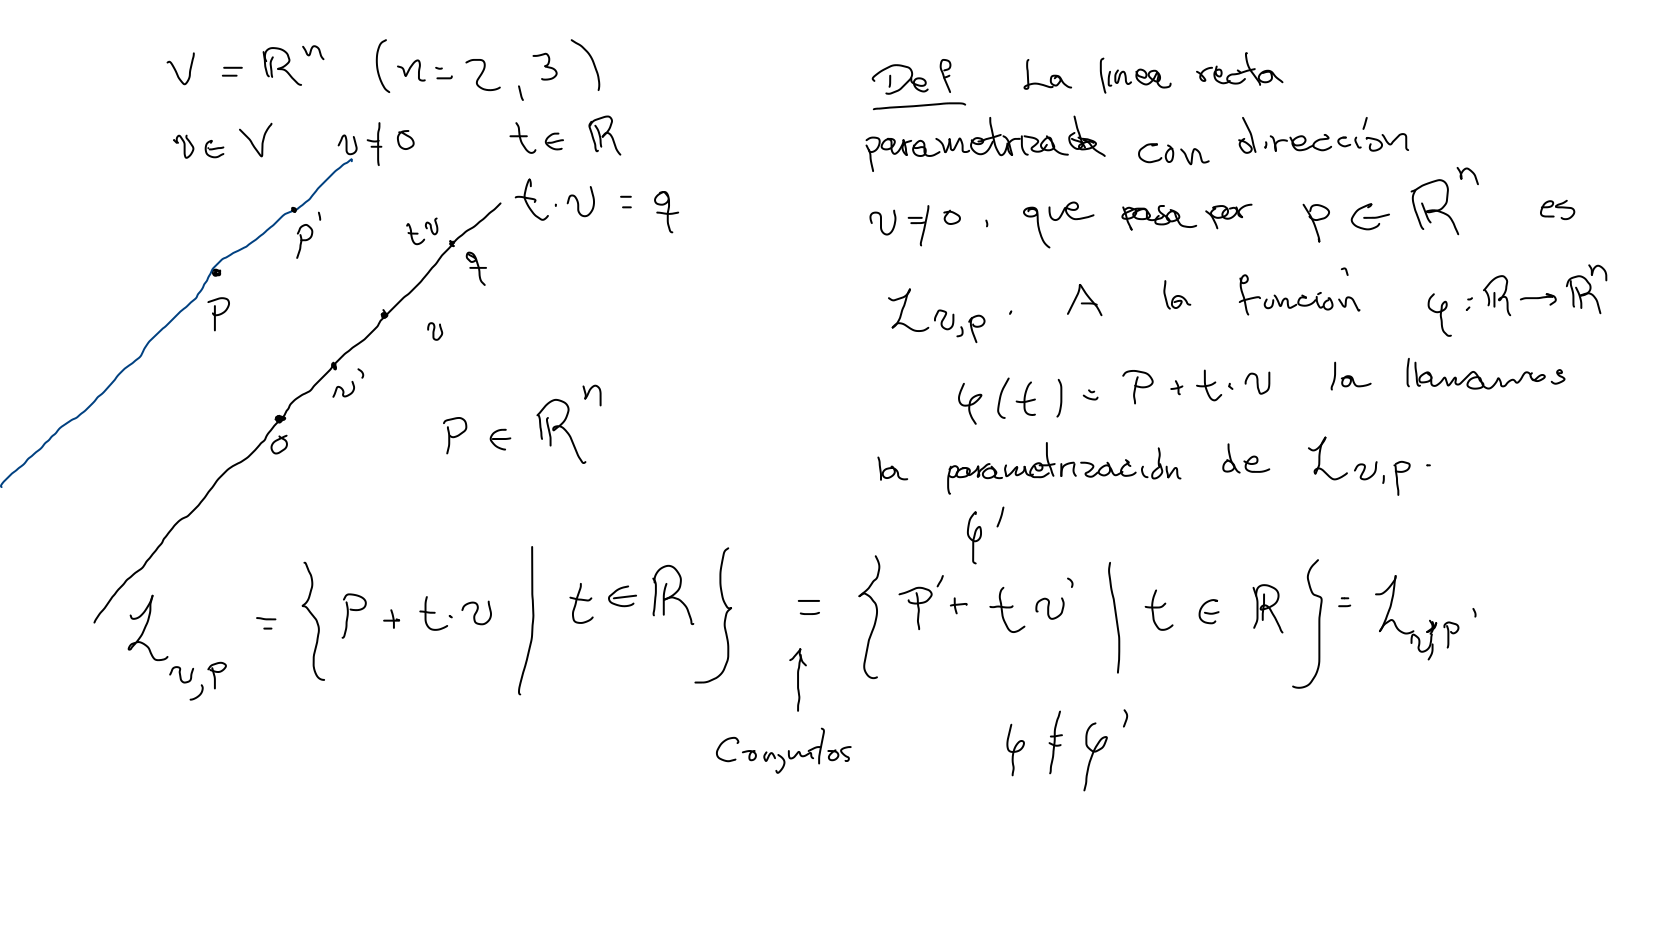 V = ℝⁿ (n=2,3)
v ∈ V v ≠ 0 t ∈ ℝ
t·v = q
tv
q
p'
p
v
v'
0
P ∈ ℝⁿ
Def La linea recta
parametrizada con dirección
v ≠ 0, que pasa por p ∈ ℝⁿ es
L_{v,p}. A la función φ: ℝ → ℝⁿ
φ(t) = P + t·v la llamamos
la parametrización de L_{v,p}.
φ'
L_{v,p} = { P + t·v | t ∈ ℝ } = { P' + t v' | t ∈ ℝ } = L_{v',p'}
↑
Conjuntos
φ ≠ φ'